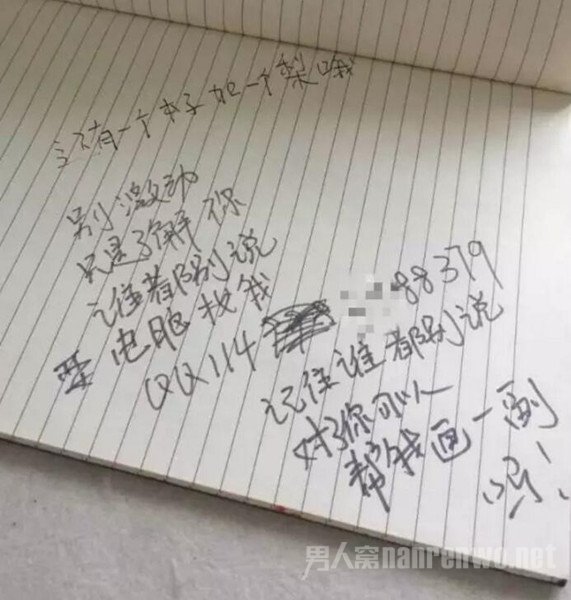 有一个本子加一个梨哦
别激动
只是了解你
谁都别说
电脑找我
QQ114 88379
记住谁都别说
对了你可以
帮我画一副
吗!
男人窝nanrenwo.net